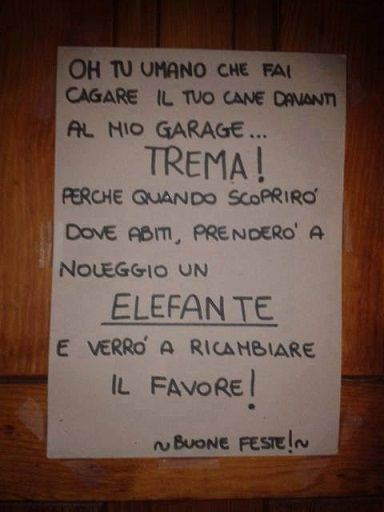 OH TU UMANO CHE FAI
CAGARE IL TUO CANE DAVANTI
AL MIO GARAGE...
TREMA!
PERCHE QUANDO SCOPRIRO'
DOVE ABITI, PRENDERO' A
NOLEGGIO UN
ELEFANTE
E VERRO' A RICAMBIARE
IL FAVORE!
~BUONE FESTE!~